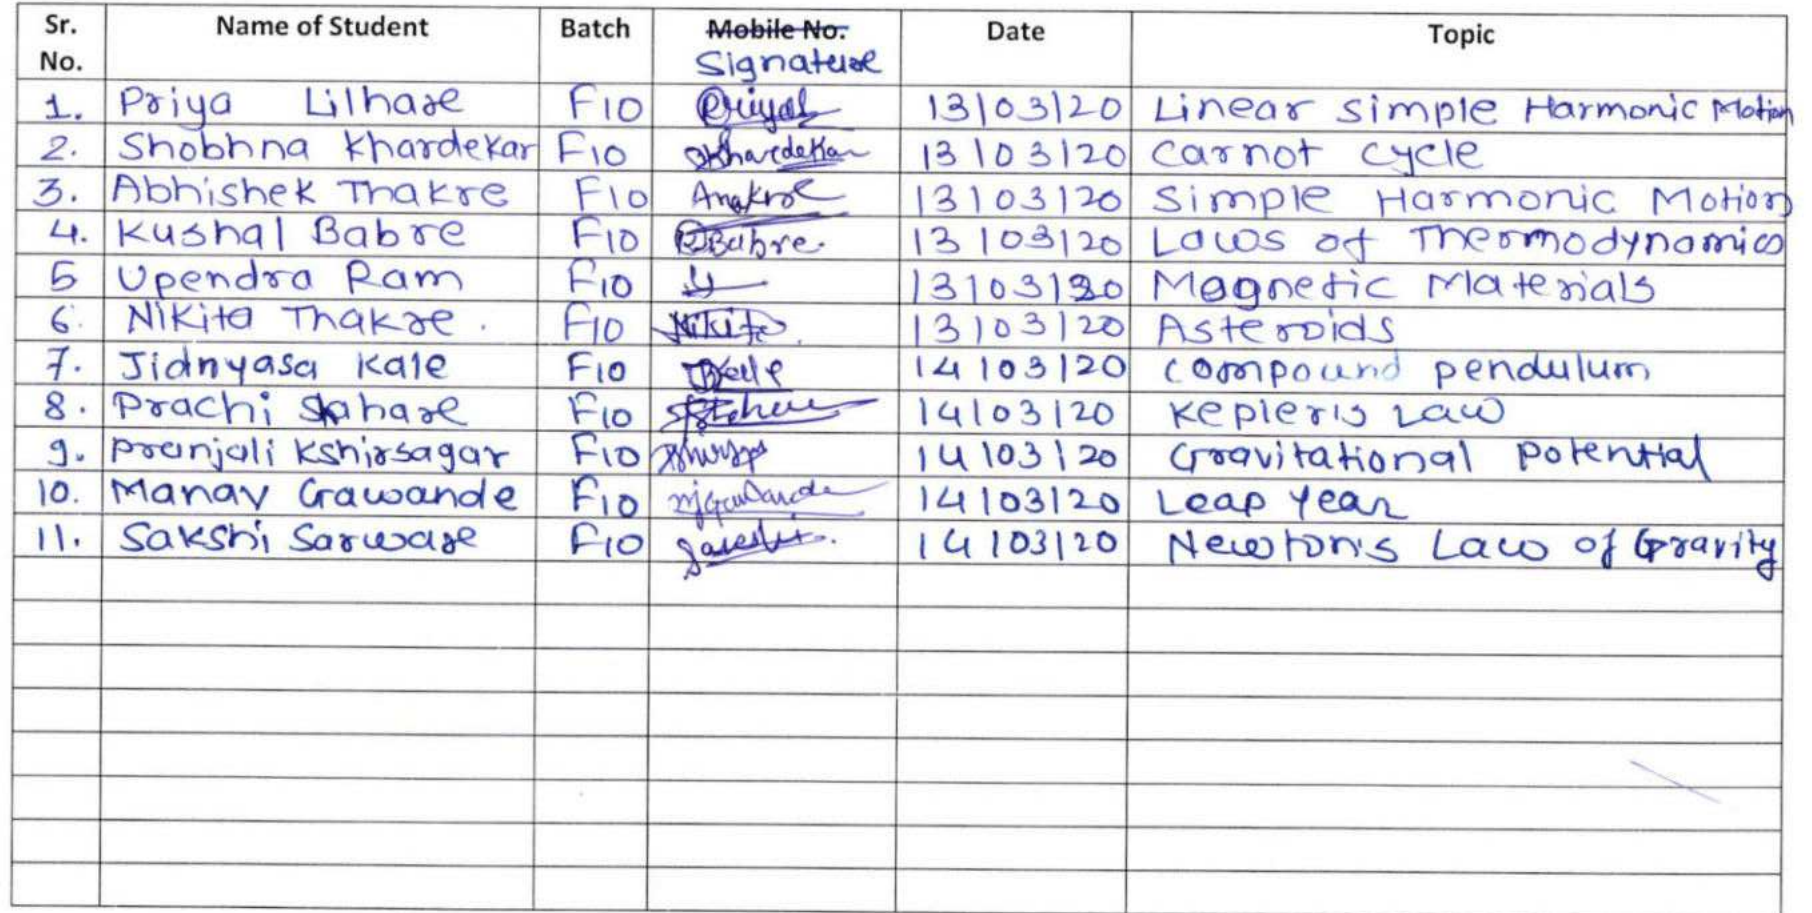 Sr. No. Name of Student Batch Mobile No. Date Topic
Signature
1. Priya Lilhare F10 13/03/20 Linear Simple Harmonic Motion
2. Shobhna Khardekar F10 Khardekar 13/03/20 Carnot cycle
3. Abhishek Thakre F10 13/03/20 Simple Harmonic Motion
4. Kushal Babre F10 Babre. 13/03/20 Laws of Thermodynamics
5 Upendra Ram F10 13/03/20 Magnetic Materials
6. Nikita Thakre. F10 Nikita 13/03/20 Asteroids
7. Jidnyasa Kale F10 14/03/20 Compound pendulum
8. Prachi Sahare F10 14/03/20 Kepler's Law
9. Pranjali Kshirsagar F10 14/03/20 Gravitational Potential
10. Manav Gawande F10 14/03/20 Leap Year
11. Sakshi Sarware F10 14/03/20 Newton's Law of Gravity